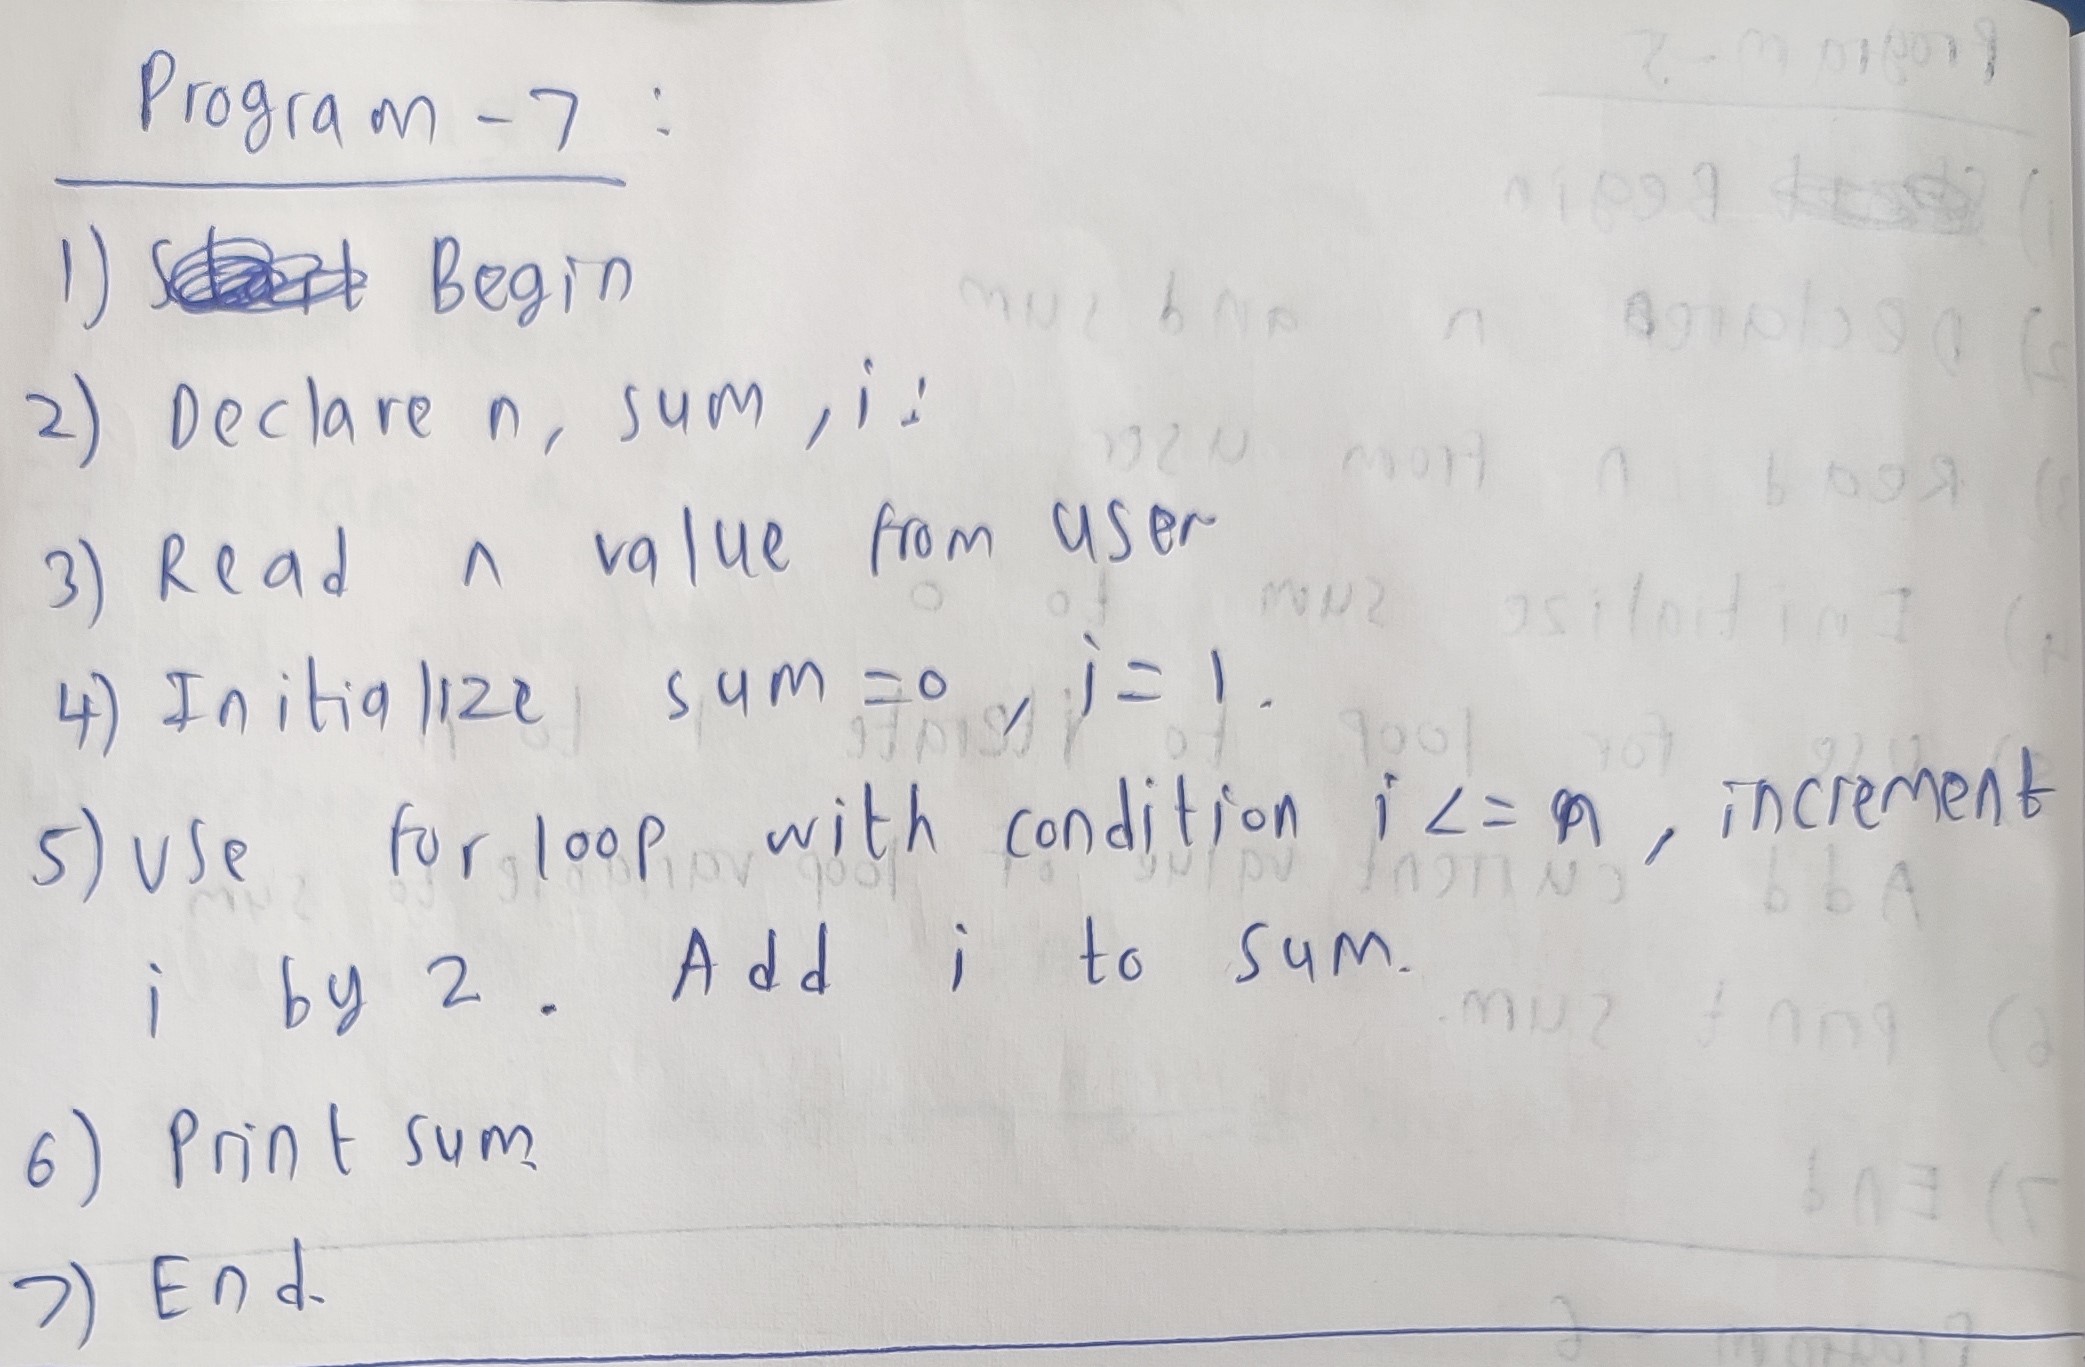 Program - 7 :
1) Start Begin
2) Declare n, sum, i:
3) Read n value from user
4) Initialize sum = 0, i = 1.
5) Use for loop with condition i <= n, increment
i by 2. Add i to sum.
6) Print sum
7) End.